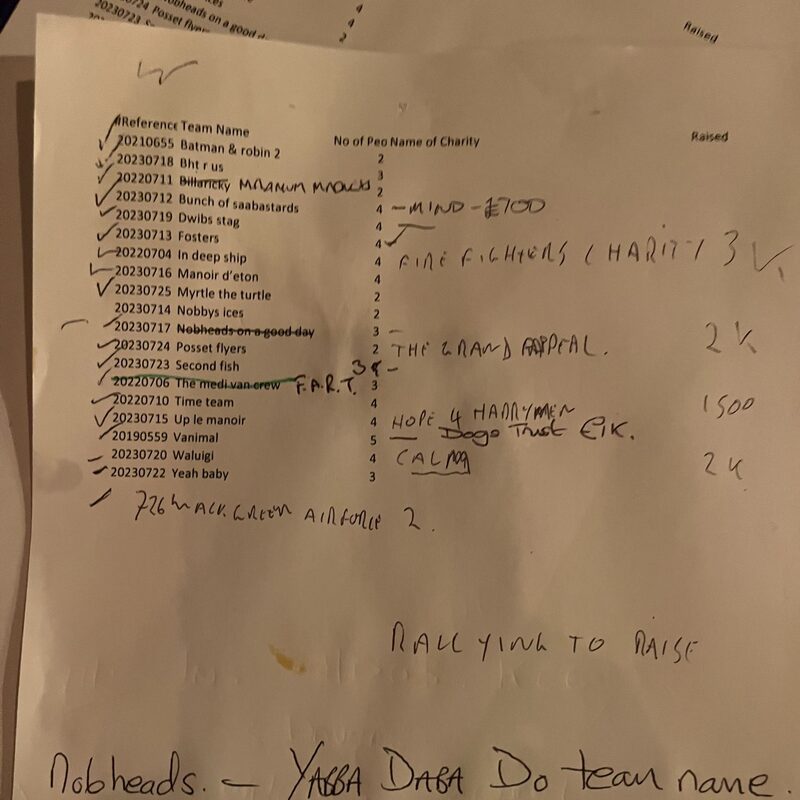 obheads on a good d
20230724 Posset flyers 4
20230723 4
2
Raised
Reference Team Name No of Peo Name of Charity Raised
20210655 Batman & robin 2 2
20230718 Bht r us 3
20220711 Billaricky 2
20230712 Bunch of saabastards 4 - MIND - £700
20230719 Dwibs stag 4
20230713 Fosters 4
20220704 In deep ship 4 FIRE FIGHTERS CHARITY 3K
20230716 Manoir d'eton 4
20230725 Myrtle the turtle 2
20230714 Nobbys ices 2
20230717 Nobheads on a good day 3 -
20230724 Posset flyers 2 THE GRAND APPEAL. 2K
20230723 Second fish 3 -
20220706 The medi van crew F.A.R.T. 3
20220710 Time team 4
20230715 Up le manoir 4 HOPE 4 HARRY 1500
20190559 Vanimal 5 - Dogs Trust £1K.
20230720 Waluigi 4 CALM 2K
20230722 Yeah baby 3
726 GREEN AIRFORCE 2.
RALLYING TO RAISE
Nobheads. - YABBA DABA Do team name.